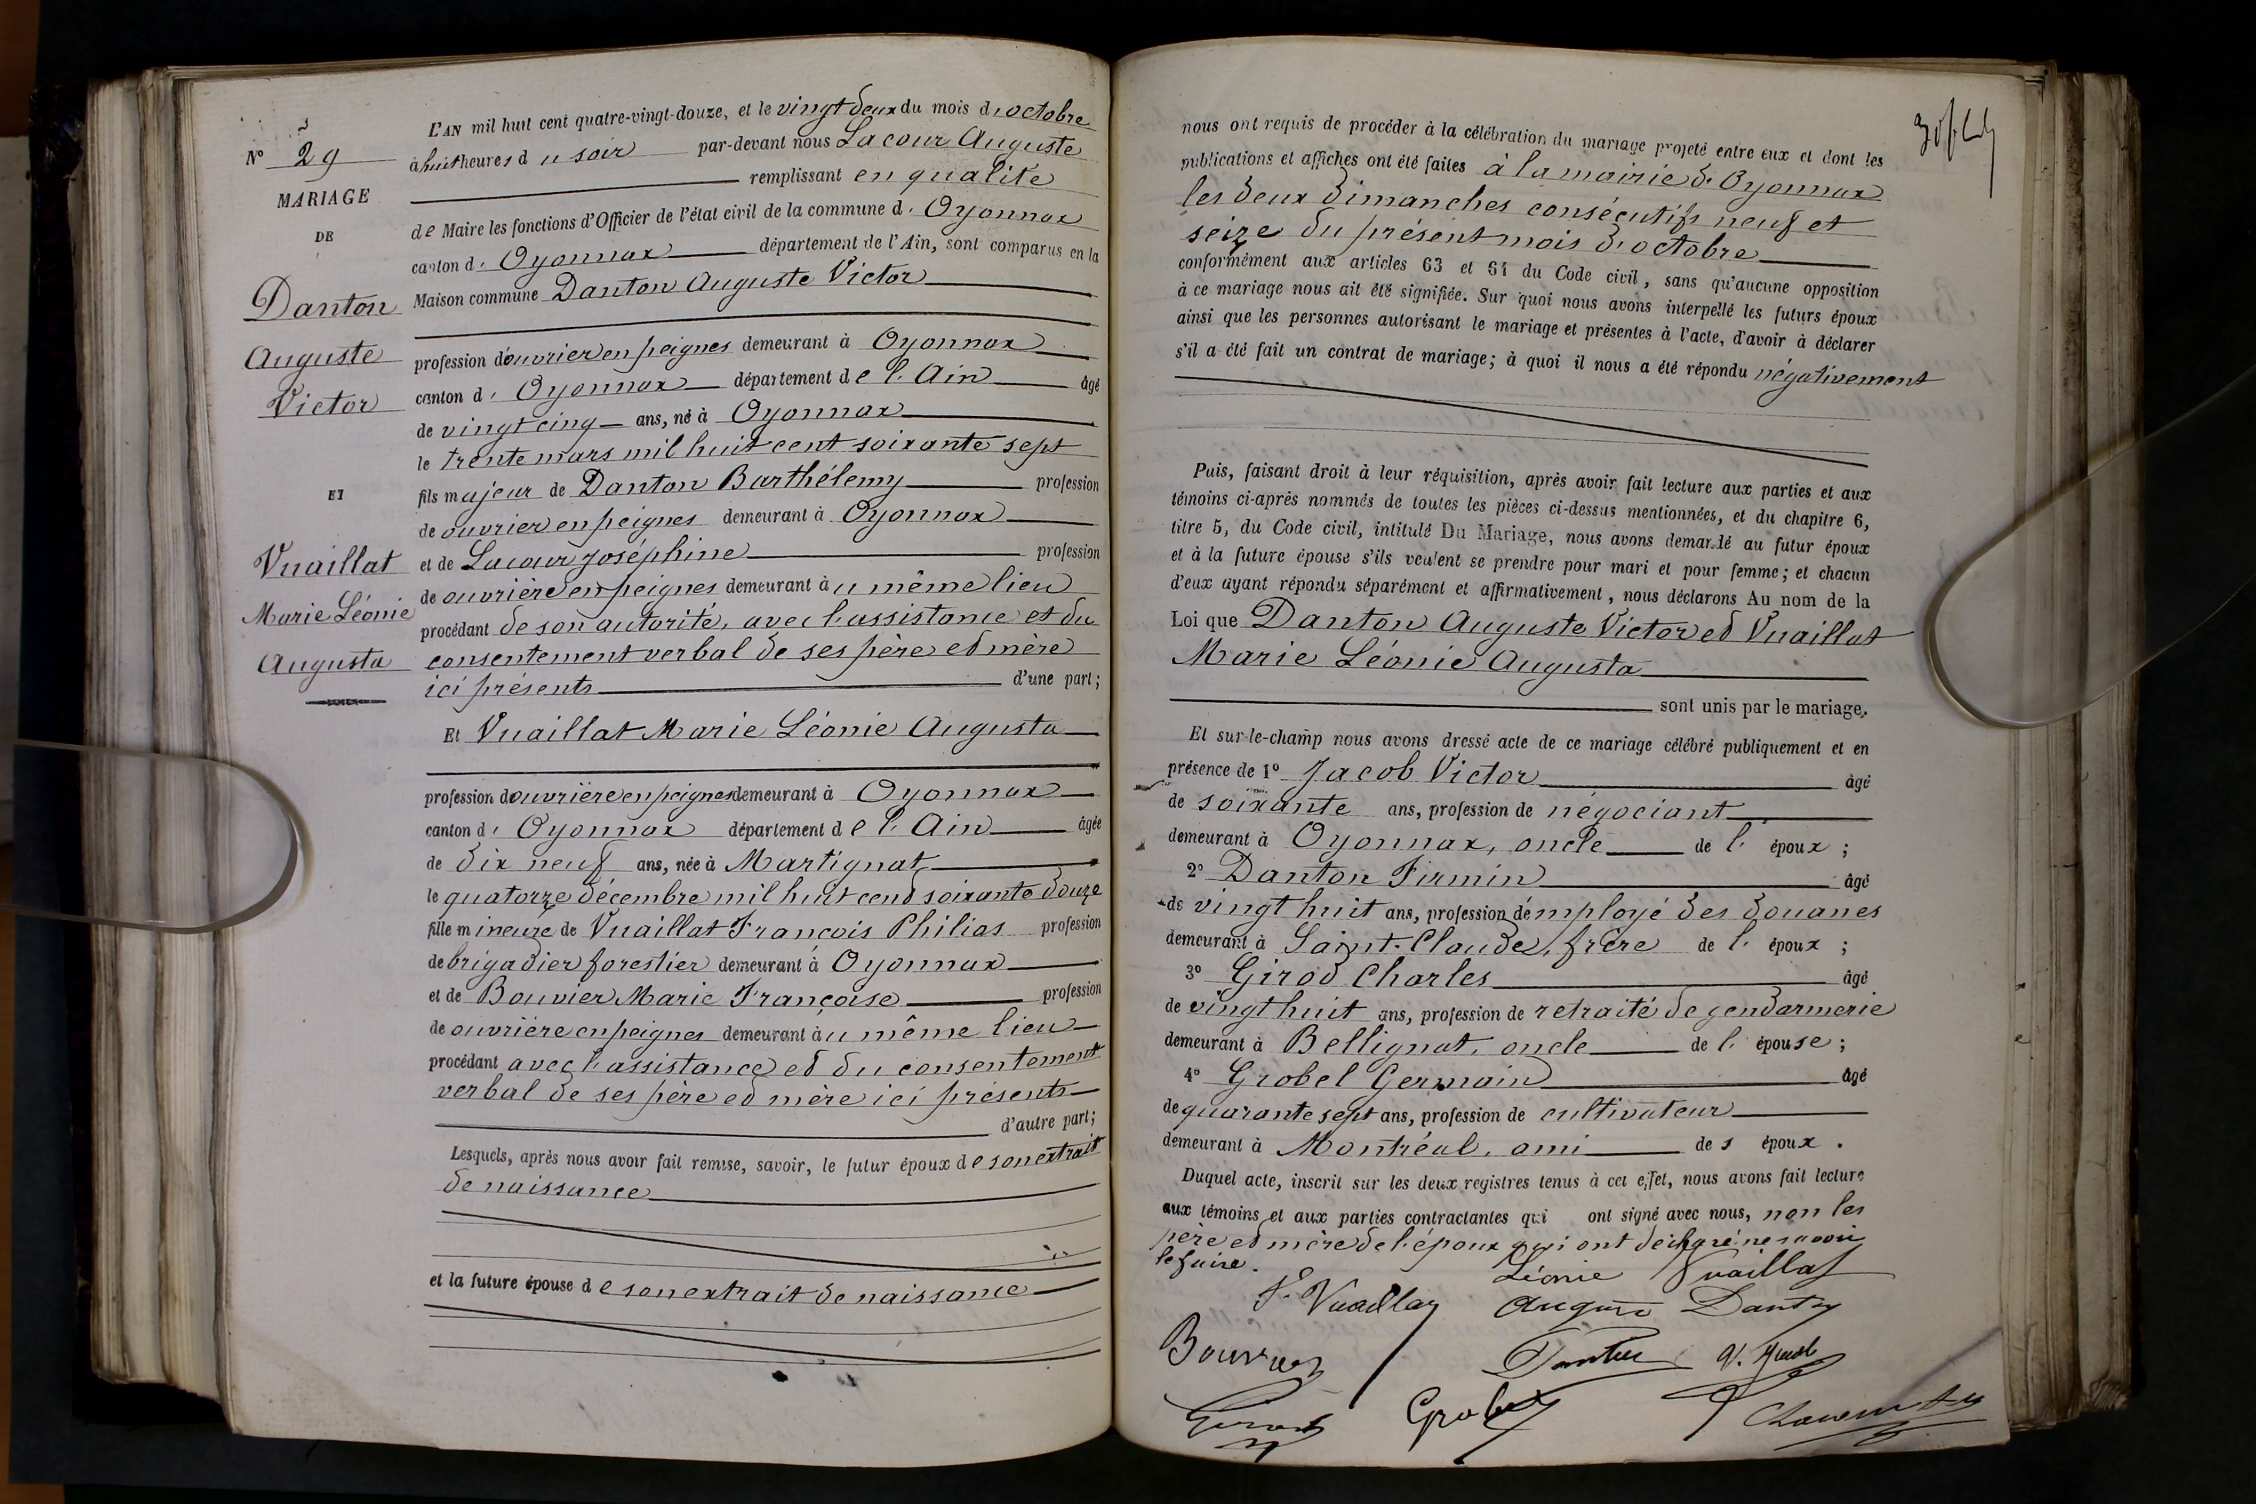 L'AN mil huit cent quatre-vingt-douze, et le vingt deux du mois d'octobre
N° 29
à huit heures du soir par-devant nous Lacour Auguste
MARIAGE
remplissant en qualité
DE
de Maire les fonctions d'Officier de l'état civil de la commune d'Oyonnax
canton d'Oyonnax département de l'Ain, sont comparus en la
Danton
Maison commune Danton Auguste Victor
Auguste
profession d'ouvrier en peignes demeurant à Oyonnax
Victor
canton d'Oyonnax département de l'Ain âgé
de vingt cinq ans, né à Oyonnax
le trente mars mil huit cent soixante sept
ET
fils majeur de Danton Barthélemy profession
de ouvrier en peignes demeurant à Oyonnax
Vuaillat
et de Lacour Joséphine profession
de ouvrière en peignes demeurant à u même lieu
Marie Léonie
procédant de son autorité, avec l'assistance et du
Augusta
consentement verbal de ses père et mère
ici présents d'une part;
Et Vuaillat Marie Léonie Augusta
profession d'ouvrière en peignes demeurant à Oyonnax
canton d'Oyonnax département de l'Ain âgée
de dix neuf ans, née à Martignat
le quatorze décembre mil huit cent soixante douze
fille mineure de Vuaillat François Philias profession
de brigadier forestier demeurant à Oyonnax
et de Bouvier Marie Françoise profession
de ouvrière en peignes demeurant à u même lieu
procédant avec l'assistance et du consentement
verbal de ses père et mère ici présents
d'autre part;
Lesquels, après nous avoir fait remise, savoir, le futur époux de son extrait
de naissance
et la future épouse de son extrait de naissance
nous ont requis de procéder à la célébration du mariage projeté entre eux et dont les
publications et affiches ont été faites à la mairie d'Oyonnax
les deux dimanches consécutifs neuf et
seize du présent mois d'octobre
conformément aux articles 63 et 64 du Code civil, sans qu'aucune opposition
à ce mariage nous ait été signifiée. Sur quoi nous avons interpellé les futurs époux
ainsi que les personnes autorisant le mariage et présentes à l'acte, d'avoir à déclarer
s'il a été fait un contrat de mariage; à quoi il nous a été répondu négativement
Puis, faisant droit à leur réquisition, après avoir fait lecture aux parties et aux
témoins ci-après nommés de toutes les pièces ci-dessus mentionnées, et du chapitre 6,
titre 5, du Code civil, intitulé Du Mariage, nous avons demandé au futur époux
et à la future épouse s'ils veulent se prendre pour mari et pour femme; et chacun
d'eux ayant répondu séparément et affirmativement, nous déclarons Au nom de la
Loi que Danton Auguste Victor et Vuaillat
Marie Léonie Augusta
sont unis par le mariage.
Et sur-le-champ nous avons dressé acte de ce mariage célébré publiquement et en
présence de 1° Jacob Victor âgé
de soixante ans, profession de négociant
demeurant à Oyonnax, oncle de l'époux;
2° Danton Firmin âgé
de vingt huit ans, profession d'employé des douanes
demeurant à Saint-Claude, frère de l'époux;
3° Girod Charles âgé
de vingt huit ans, profession de retraité de gendarmerie
demeurant à Bellignat, oncle de l'épouse;
4° Grobel Germain âgé
de quarante sept ans, profession de cultivateur
demeurant à Montréal, ami des époux.
Duquel acte, inscrit sur les deux registres tenus à cet effet, nous avons fait lecture
aux témoins et aux parties contractantes qui ont signé avec nous, non les
père et mère de l'époux qui ont déclaré ne savoir
le faire.
Léonie Vuaillat
Vuaillat Auguste Danton
Bouvier Danton
Girod Grobel